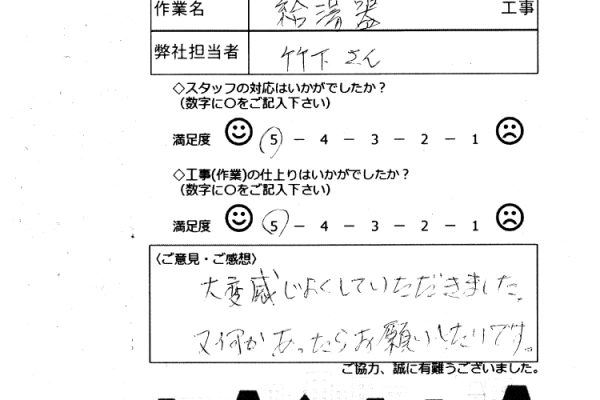 作業名 給湯器 工事
弊社担当者 竹下さん
◇スタッフの対応はいかがでしたか?
(数字に〇をご記入下さい)
満足度 5 − 4 − 3 − 2 − 1
◇工事(作業)の仕上りはいかがでしたか?
(数字に〇をご記入下さい)
満足度 5 − 4 − 3 − 2 − 1
〈ご意見・ご感想〉
大変感じよくしていただきました。
又何かあったらお願いしたいです。
ご協力、誠に有難うございました。